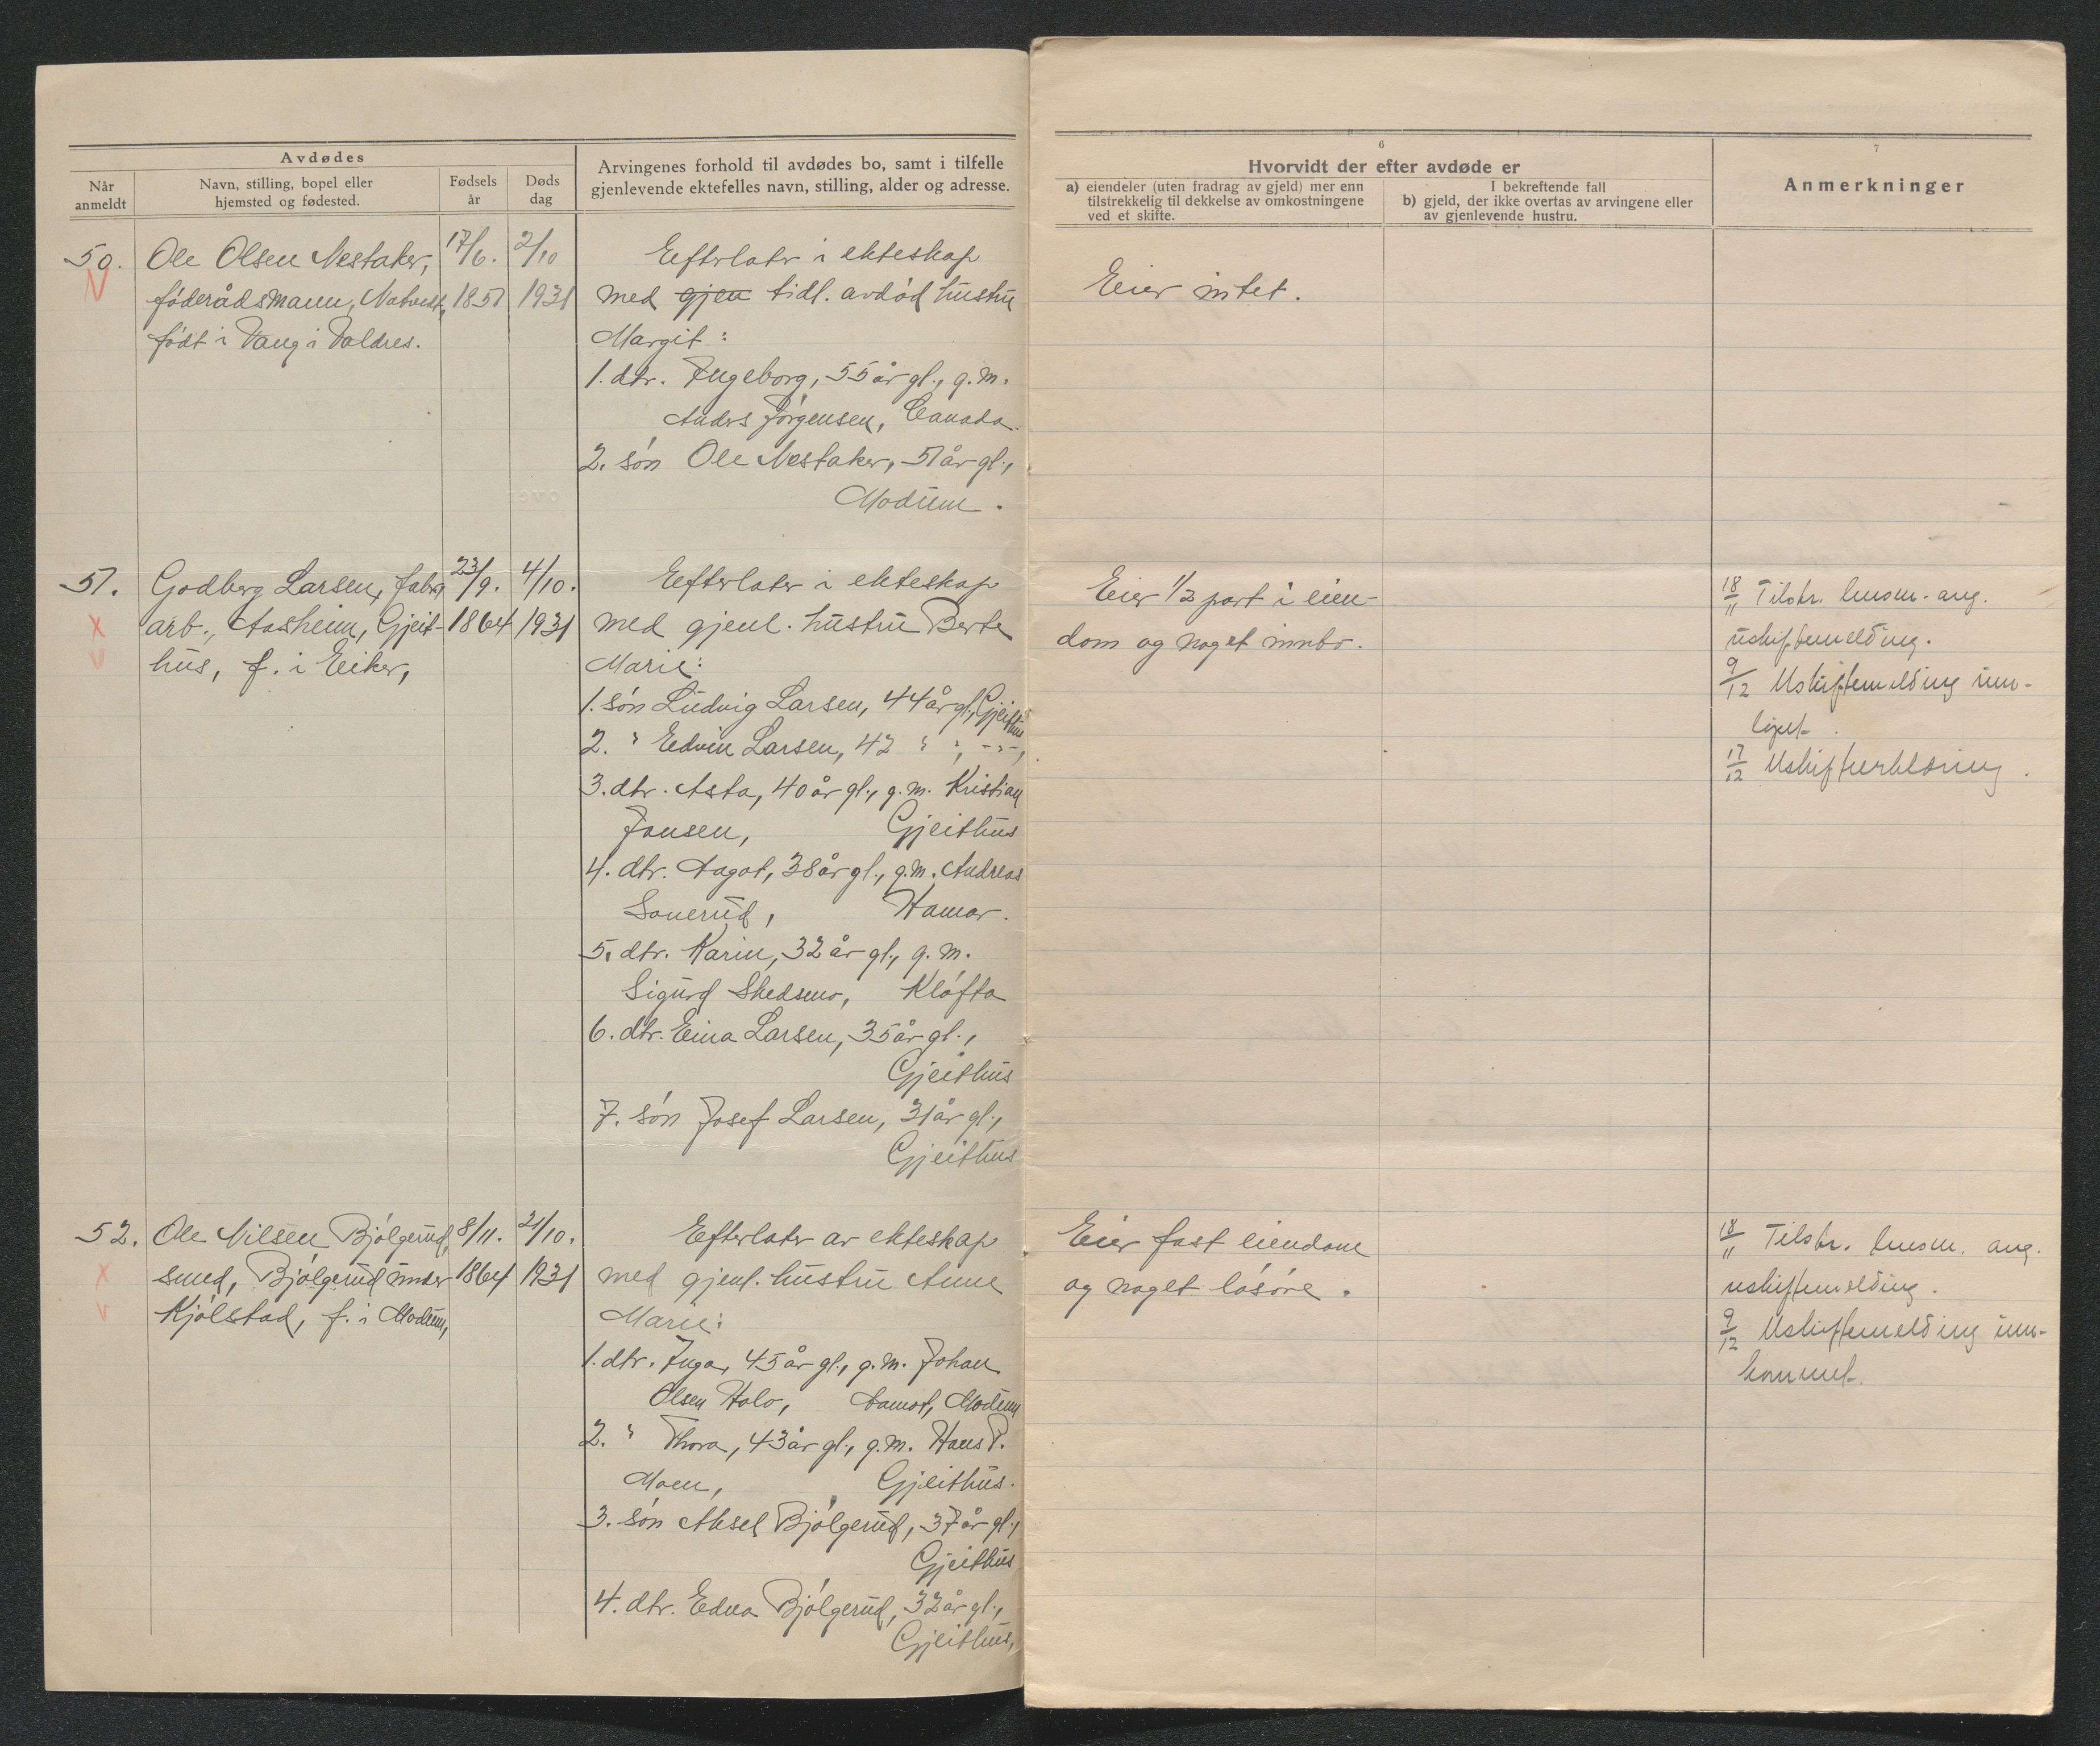 Avdødes
Når anmeldt
Navn, stilling, bopel eller hjemsted og fødested.
Fødsels år
Døds dag
Arvingenes forhold til avdødes bo, samt i tilfelle
gjenlevende ektefelles navn, stilling, alder og adresse.
6
Hvorvidt der efter avdøde er
a) eiendeler (uten fradrag av gjeld) mer enn
tilstrekkelig til dekkelse av omkostningene
ved et skifte.
I bekreftende fall
b) gjeld, der ikke overtas av arvingene eller
av gjenlevende hustru.
7
Anmerkninger
50.
Ole Olsen Nestaker,
føderådsmann,
født i Vang i Valdres.
17/6.
1851
2/10
1931
Efterlater i ekteskap
med gjen tidl. avdød hustru
Margit:
1. dtr. Ingeborg, 55 år gl., g.m.
Anders Jørgensen, Canada.
2. søn Ole Nestaker, 51 år gl.,
Modum.
Eier intet.
51.
Godberg Larsen, fabr.
arb., Aasheim, Gjeit-
hus, f. i Eiker,
23/9.
1864
4/10.
1931
Efterlater i ekteskap
med gjenl. hustru Berte
Marie:
1. søn Ludvig Larsen, 44 år gl., Gjeithus
2. " Edvin Larsen, 42 " ", -"-,
3. dtr. Asta, 40 år gl., g.m. Kristian
Jansen, Gjeithus
4. dtr. Aagot, 38 år gl., g.m. Andreas
Sonerud, Hamar.
5. dtr. Karin, 32 år gl., g.m.
Sigurd Skedsmo, Kløfta
6. dtr. Eina Larsen, 35 år gl.,
Gjeithus
7. søn Josef Larsen, 31 år gl.,
Gjeithus
Eier 1/3 part i eien-
dom og noget innbo.
18/11 Tilskr. lensm. ang.
uskiftemelding.
9/12 Uskiftemelding inn-
17/12 Uskifteerklæring.
52.
Ole Nilsen Bjølgerud,
smed, Bjølgerud under
Kjølstad, f. i Modum,
8/11.
1864
21/10.
1931
Efterlater av ekteskap
med gjenl. hustru Anne
Marie:
1. dtr. Inga, 45 år gl., g.m. Johan
Olsen Kolo, Aamot, Modum
2. " Thora, 43 år gl., g.m. Hans P.
Moen, Gjeithus.
3. søn Aksel Bjølgerud, 37 år gl.,
Gjeithus
4. dtr. Edna Bjølgerud, 32 år gl.,
Gjeithus,
Eier fast eiendom
og noget løsøre.
18/11 Tilskr. lensm. ang.
uskiftemelding.
9/12 Uskiftemelding inn-
kommet.